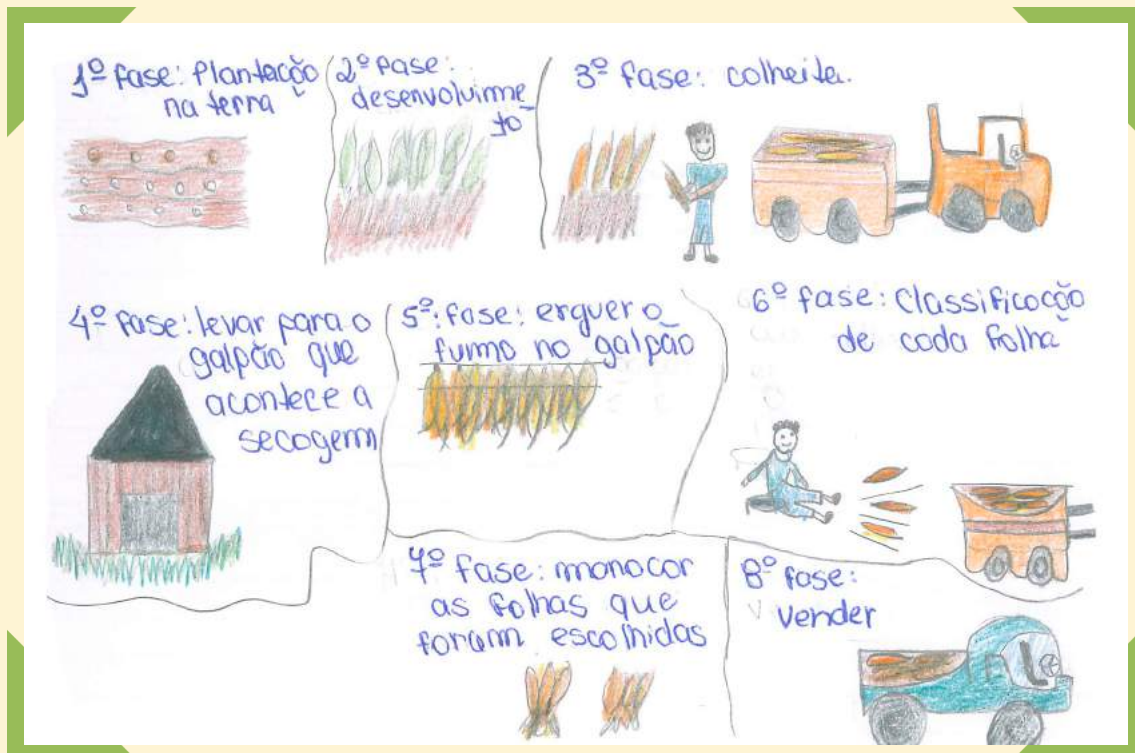 1º fase: Plantação
na terra
2º fase:
desenvolvime
to
3º fase: colheita.
4º fase: levar para o
galpão que
acontece a
secagem
5º: fase: erguer o
fumo no galpão
6º fase: Classificação
de cada folha
7º fase: manocar
as folhas que
foram escolhidas
8º fase:
Vender